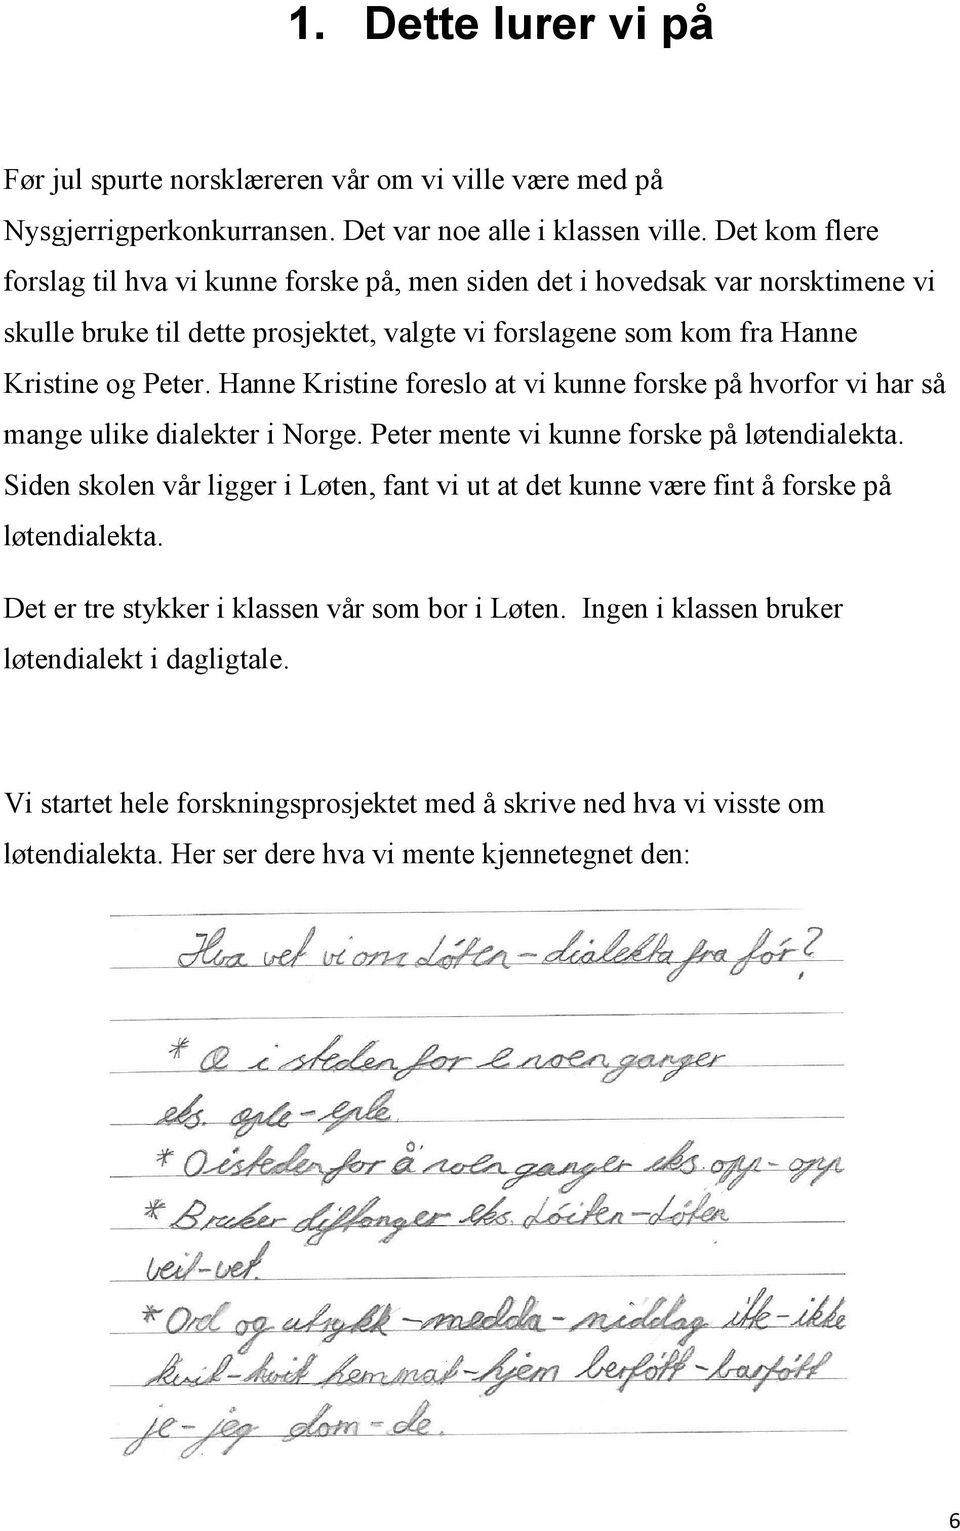 1. Dette lurer vi på
Før jul spurte norsklæreren vår om vi ville være med på
Nysgjerrigperkonkurransen. Det var noe alle i klassen ville. Det kom flere
forslag til hva vi kunne forske på, men siden det i hovedsak var norsktimene vi
skulle bruke til dette prosjektet, valgte vi forslagene som kom fra Hanne
Kristine og Peter. Hanne Kristine foreslo at vi kunne forske på hvorfor vi har så
mange ulike dialekter i Norge. Peter mente vi kunne forske på løtendialekta.
Siden skolen vår ligger i Løten, fant vi ut at det kunne være fint å forske på
løtendialekta.
Det er tre stykker i klassen vår som bor i Løten. Ingen i klassen bruker
løtendialekt i dagligtale.
Vi startet hele forskningsprosjektet med å skrive ned hva vi visste om
løtendialekta. Her ser dere hva vi mente kjennetegnet den:
Hva vet vi om Løten-dialekta fra før?
* Æ i steden for e noen ganger
eks. æple-eple.
* O isteden for å noen ganger eks. opp-opp
* Bruker diftonger eks. Løiten-Løten
veit-vet.
* Ord og utrykk -medda-middag itte-ikke
kvit-hvit hemmat-hjem berføtt-barføtt
je-jeg dom-de.
6